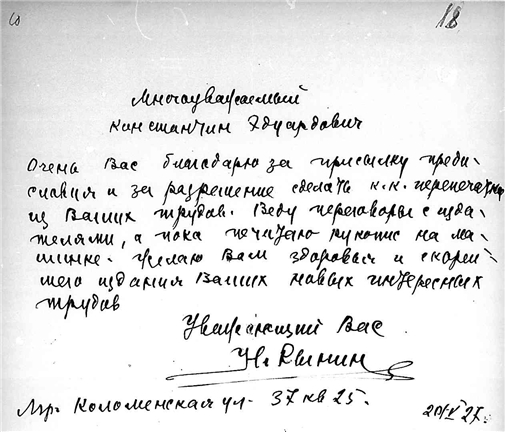 18
Многоуважаемый
Константин Эдуардович
Очень Вас благодарю за присылку преди-
словия и за разрешение сделать к.к. перепечатку
из Ваших трудов. Веду переговоры с изда-
телями, а пока печатаю рукопис на ма-
шинке. Желаю Вам здоровья и скорей-
шего издания Ваших новых интересных
трудов
Уважающий Вас
Н. Рынин
Адр. Коломенская ул. 37 кв 25.
20/V 27.